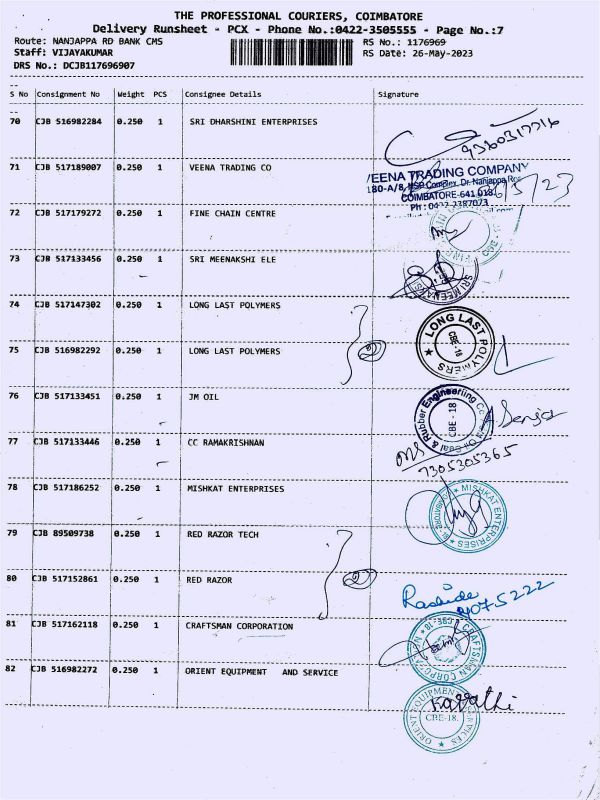 THE PROFESSIONAL COURIERS, COIMBATORE
Delivery Runsheet - PCX - Phone No.:0422-3505555 - Page No.:7
Route: NANJAPPA RD BANK CMS RS No.: 1176969
Staff: VIJAYAKUMAR RS Date: 26-May-2023
DRS No.: DCJB117696907
S No Consignment No Weight PCS Consignee Details Signature
70 CJB 516982284 0.250 1 SRI DHARSHINI ENTERPRISES
9360317716
71 CJB 517189007 0.250 1 VEENA TRADING CO
VEENA TRADING COMPANY
180-A/8, HSP Complex, Dr. Nanjappa Road
COIMBATORE-641 018
Ph : 0422-2387073
72 CJB 517179272 0.250 1 FINE CHAIN CENTRE
73 CJB 517133456 0.250 1 SRI MEENAKSHI ELE
74 CJB 517147302 0.250 1 LONG LAST POLYMERS
LONG LAST POLYMERS
CBE-18
2
75 CJB 516982292 0.250 1 LONG LAST POLYMERS
76 CJB 517133451 0.250 1 JM OIL
Oil Seal & Rubber Engineering Co
CBE - 18
77 CJB 517133446 0.250 1 CC RAMAKRISHNAN
7305305365
78 CJB 517186252 0.250 1 MISHKAT ENTERPRISES
MISHKAT ENTERPRISES
79 CJB 89509738 0.250 1 RED RAZOR TECH
2
80 CJB 517152861 0.250 1 RED RAZOR
81 CJB 517162118 0.250 1 CRAFTSMAN CORPORATION
CRAFTSMAN CORPORATION
CBE-18
82 CJB 516982272 0.250 1 ORIENT EQUIPMENT AND SERVICE
ORIENT EQUIPMENT SERVICES
CBE-18.